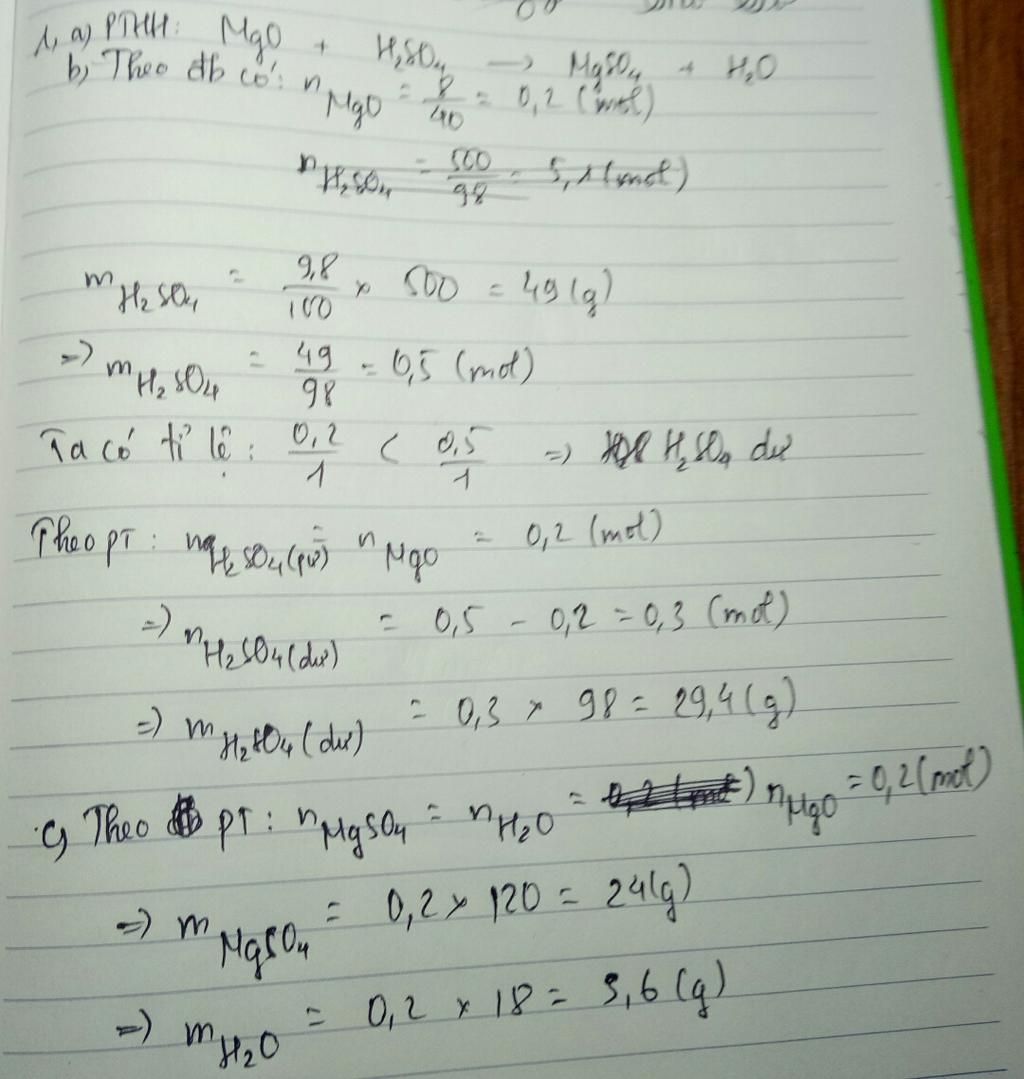 1, a) PTHH: MgO + H₂SO₄ → MgSO₄ + H₂O
b, Theo đb có: n MgO = 8/40 = 0,2 (mol)
n H₂SO₄ = 500/98 = 5,1 (mol)
m H₂SO₄ = 9,8/100 × 500 = 49 (g)
=) m H₂SO₄ = 49/98 = 0,5 (mol)
Ta có tỉ lệ: 0,2/1 < 0,5/1 =) H₂SO₄ dư
Theo pT: n H₂SO₄ (pư) = n MgO = 0,2 (mol)
=) n H₂SO₄ (dư) = 0,5 - 0,2 = 0,3 (mol)
=) m H₂SO₄ (dư) = 0,3 × 98 = 29,4 (g)
c, Theo pT: n MgSO₄ = n H₂O = n MgO = 0,2 (mol)
=) m MgSO₄ = 0,2 × 120 = 24 (g)
=) m H₂O = 0,2 × 18 = 3,6 (g)